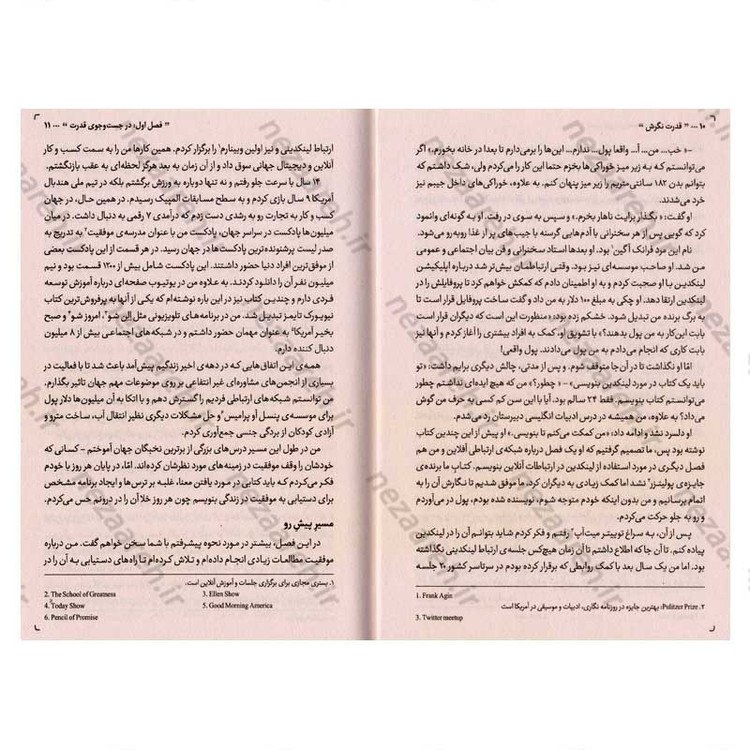 ۱۰ ... " قدرت نگرش "
-« خب... من... آ... واقعا پول... ندارم... این‌ها را برمی‌دارم تا بعدا در خانه بخورم.» اگر
می‌توانستم که به زیر میز خوراکی‌ها بخزم حتما این کار را می‌کردم ولی، شک داشتم که
بتوانم بدن ۱۸۲ سانتی‌متریم را زیر میز پنهان کنم. به علاوه، خوراکی‌های داخل جیبم نیز
خرد می‌شدند.
او گفت: « بگذار برایت ناهار بخرم.» و سپس به سوی در رفت. او به گونه‌ای وانمود
کرد که گویی پس از هر سخنرانی با آدم‌هایی گرسنه با جیب‌های پر از غذا روبه‌رو می‌شود.
نام این مرد فرانک آگین¹ بود. او بعدها استاد سخنرانی و فن بیان اجتماعی و عمومی
من شد. او صاحب موسسه‌ای نیز بود. وقتی ارتباطمان بیش‌تر شد درباره اپلیکیشن
لینکدین با او صحبت کردم و به او اطمینان دادم که کمکش خواهم کرد تا پروفایلش را در
لینکدین ارتقا دهد. او چکی به مبلغ ۱۰۰ دلار به من داد و گفت ساخت پروفایل قرار است تا
به برگ برنده من تبدیل شود. خشکم زده بود: «منظورت این است که دیگران قرار است
بابت این‌کار به من پول بدهند؟» با تشویق او، کمک به افراد بیشتری را آغاز کردم و آنها نیز
بابت کاری که انجام می‌دادم به من پول می‌دادند. پول واقعی!
امّا او نگذاشت تا در آن‌جا متوقف شوم. پس از مدتی، چالش دیگری برایم داشت: «تو
باید یک کتاب در مورد لینکدین بنویسی.» - « چطور؟» من که هیچ ایده‌ای نداشتم چطور
می‌توانستم کتاب بنویسم. فقط ۲۴ سالم بود. آیا با این سن کم کسی به حرف من گوش
می‌داد؟ به علاوه، من همیشه در درس ادبیات انگلیسی دبیرستان رد می‌شدم.
او دلسرد نشد و ادامه داد: «من کمکت می‌کنم تا بنویسی.» او پیش از این چندین کتاب
نوشته بود پس، ما تصمیم گرفتیم که او یک فصل درباره شبکه‌ی ارتباطی آفلاین و من هم
فصل دیگری در مورد استفاده از لینکدین در ارتباطات آنلاین بنویسیم. کتاب ما برنده‌ی
جایزه‌ی پولیتزر² نشد اما کمک زیادی به دیگران کرد. ما موفق شدیم تا نگارش آن را به
اتمام برسانیم و من بدون اینکه خودم متوجه شوم، نویسنده شده بودم، پول در می‌آوردم
و رو به جلو حرکت می‌کردم.
پس از آن، به سراغ توییتر میت‌آپ³ رفتم و فکر کردم شاید بتوانم آن را در لینکدین
پیاده کنم. تا آن جا که اطلاع داشتم تا آن زمان هیچ‌کس جلسه‌ی ارتباط لینکدینی نگذاشته
بود. اما من یک سال بعد با کمک روابطی که برقرار کرده بودم در سرتاسر کشور ۲۰ جلسه
1. Frank Agin
۲. Pulitzer Prize: بهترین جایزه در روزنامه نگاری، ادبیات و موسیقی در آمریکا است
3. Twitter meetup
" فصل اول: در جست‌وجوی قدرت " ... ۱۱
ارتباط لینکدینی و نیز اولین وبینارم¹ را برگزار کردم. همین کارها من را به سمت کسب و کار
آنلاین و دیجیتال جهانی سوق داد و از آن زمان به بعد هرگز لحظه‌ای به عقب بازنگشتم.
۱۴ سال با سرعت جلو رفتم و نه تنها دوباره به ورزش برگشتم بلکه در تیم ملی هندبال
آمریکا ۹ سال بازی کردم و به سطح مسابقات المپیک رسیدم. در همین حال، در جهان
کسب و کار به تجارت رو به رشدی دست زدم که درآمدی ۷ رقمی به دنبال داشت. در میان
میلیون‌ها پادکست در سراسر جهان، پادکست من با عنوان مدرسه‌ی موفقیت² به تدریج به
صدر لیست پرشنونده‌ترین پادکست‌ها در جهان رسید. در هر قسمت از این پادکست بعضی
از موفق‌ترین افراد دنیا حضور داشتند. این پادکست شامل بیش از ۱۲۰۰ قسمت بود و نیم
میلیون نفر آن را دانلود کردند. به علاوه من در یوتیوب صفحه‌ای درباره آموزش توسعه
فردی دارم و چندین کتاب نیز در این باره نوشته‌ام که یکی از آنها به پرفروش‌ترین کتاب
نیویورک تایمز تبدیل شد. من در برنامه‌های تلویزیونی مثل الن شو³، امروز شو⁴ و صبح
بخیر آمریکا⁵ به عنوان مهمان حضور داشتم و در شبکه‌های اجتماعی بیش از ۸ میلیون
دنبال کننده دارم.
همه‌ی این اتفاق‌هایی که در دهه‌ی اخیر زندگیم پیش‌آمد باعث شد تا با فعالیت در
بسیاری از انجمن‌های مشاوره‌ای غیر انتفاعی بر روی موضوعات مهم جهان تاثیر بگذارم.
من توانستم شبکه‌های ارتباطی فردیم را گسترش دهم و با اتکا به آن میلیون‌ها دلار پول
برای موسسه‌ی پنسل آو پرامیس⁶ و حل مشکلات دیگری نظیر انتقال آب، ساخت مترو و
آزادی کودکان از بردگی جنسی جمع‌آوری کردم.
من در طول این مسیر درس‌های بزرگی از برترین نخبگان جهان آموختم – کسانی که
خودشان را وقف موفقیت در زمینه‌های مورد نظرشان کرده‌اند. امّا، در پایان هر روز با خودم
فکر می‌کردم که باید کتابی در مورد یافتن معنا، غلبه بر ترس ها و ایجاد برنامه مشخص
برای دستیابی به موفقیت در زندگی بنویسم چون هر روز خلا آن را در درونم حس می‌کردم.
مسیرِ پیشِ رو
در این فصل، بیشتر در مورد نحوه پیشرفتم با شما سخن خواهم گفت. من درباره
موفقیت مطالعات زیادی انجام داده‌ام و تلاش کرده‌ام تا راه‌های دستیابی به آن را در
۱. بستری مجازی برای برگزاری جلسات و آموزش آنلاین است.
2. The School of Greatness
3. Ellen Show
4. Today Show
5. Good Morning America
6. Pencil of Promise
nezaaneh.ir